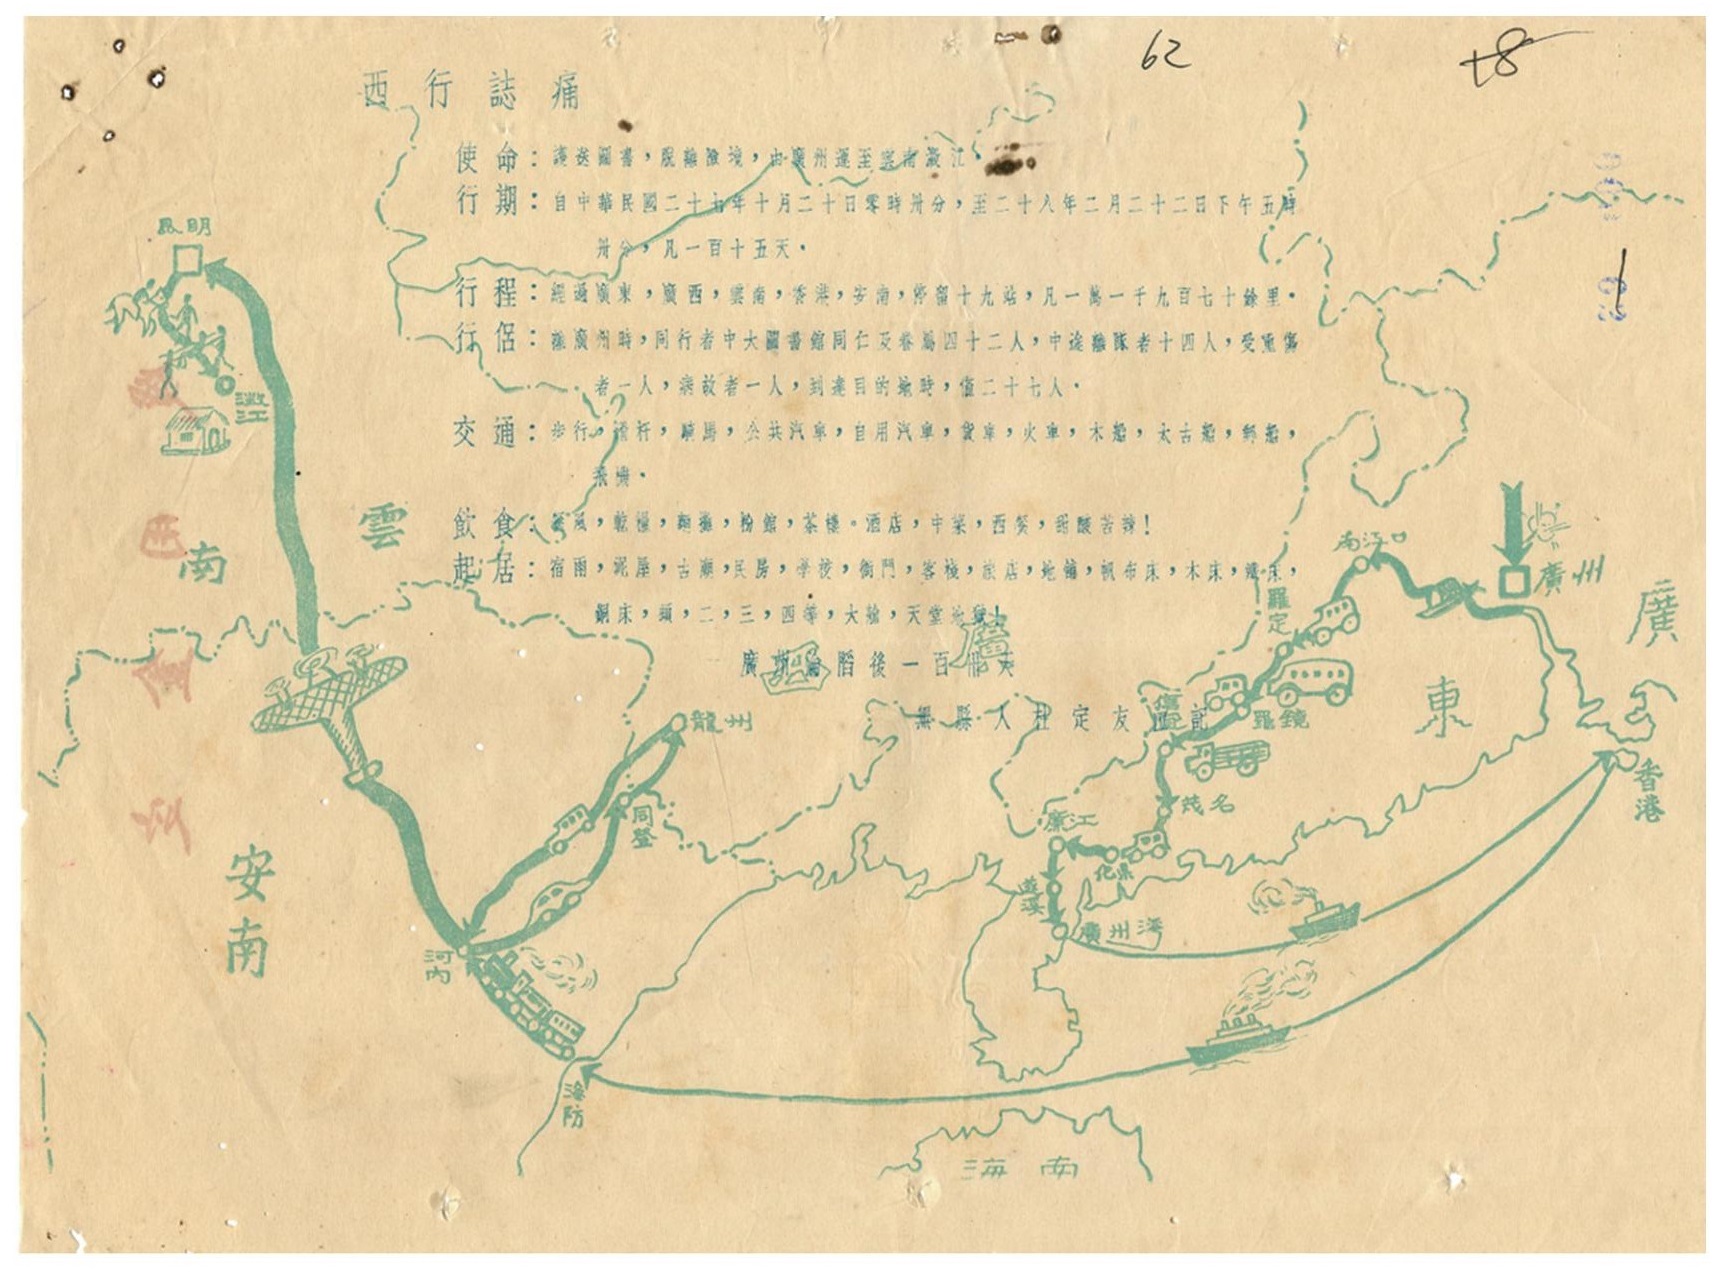 62
+8
西行誌痛
使命：護送圖書，脫離險境，由廣州運至雲南澂江。
行期：自中華民國二十七年十月二十日零時卅分，至二十八年二月二十二日下午五時
卅分，凡一百十五天。
行程：經過廣東，廣西，雲南，香港，安南，停留十九站，凡一萬一千九百七十餘里。
行侶：離廣州時，同行者中大圖書館同仁及眷屬四十二人，中途離隊者十四人，受重傷
者一人，病故者一人，到達目的地時，僅二十七人。
交通：步行，滑杆，騎馬，公共汽車，自用汽車，貨車，火車，木船，太古船，郵船，
飛機。
飲食：餐風，乾糧，麵攤，粉館，茶樓。酒店，中菜，西餐，甜酸苦辣！
起居：宿雨，泥屋，古廟，民房，學校，衙門，客棧，旅店，地鋪，帆布床，木床，鐵床，
銅床，頭，二，三，四等，大艙，天堂地獄！
廣州淪陷後一百卅天
縣人杜定友 記
昆明
澂江
雲
南
安
南
廣
西
龍州
同登
河內
海防
南江口
羅定
羅鏡
茂名
化縣
廉江
遂溪
廣州灣
廣州
廣
東
香港
海南